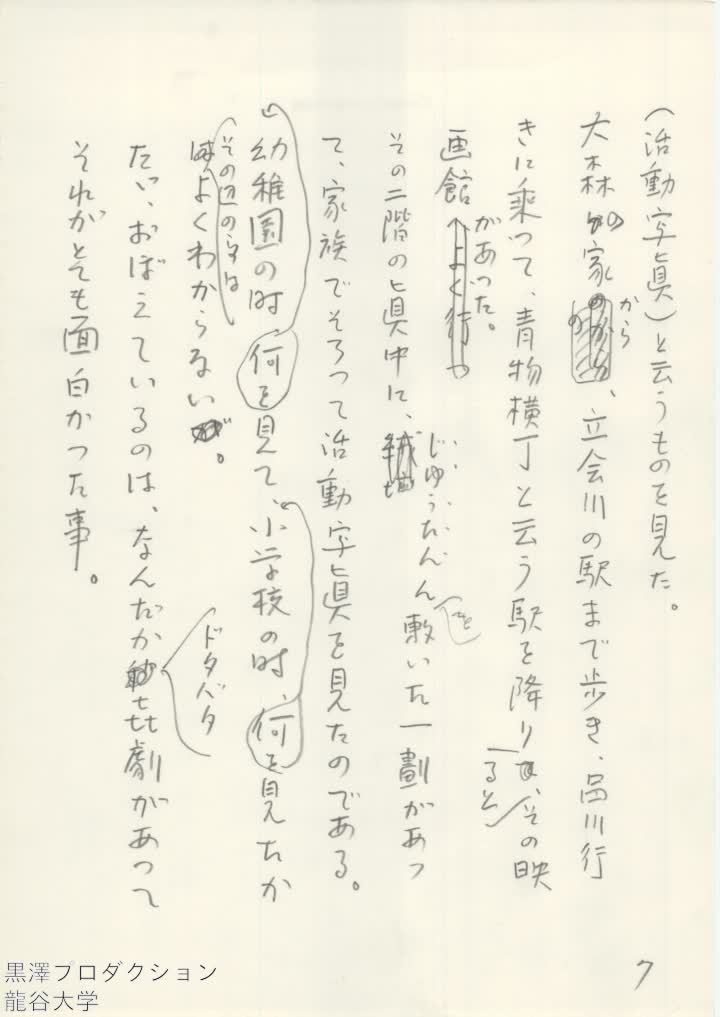 (活動写真)と云うものを見た。
大森の家から、立会川の駅まで歩き、品川行
きに乗つて、青物横丁と云う駅を降りると、その映
画館があった。
その二階の真中に、じゅうたんを敷いた一劃があつ
て、家族でそろつて活動写真を見たのである。
幼稚園の時、何を見て、小学校の時、何を見たか
その辺の事は
はよくわからない。
たゞ、おぼえているのは、なんだかドタバタ喜劇があつて
それがとても面白かつた事。
7
黒澤プロダクション
龍谷大学